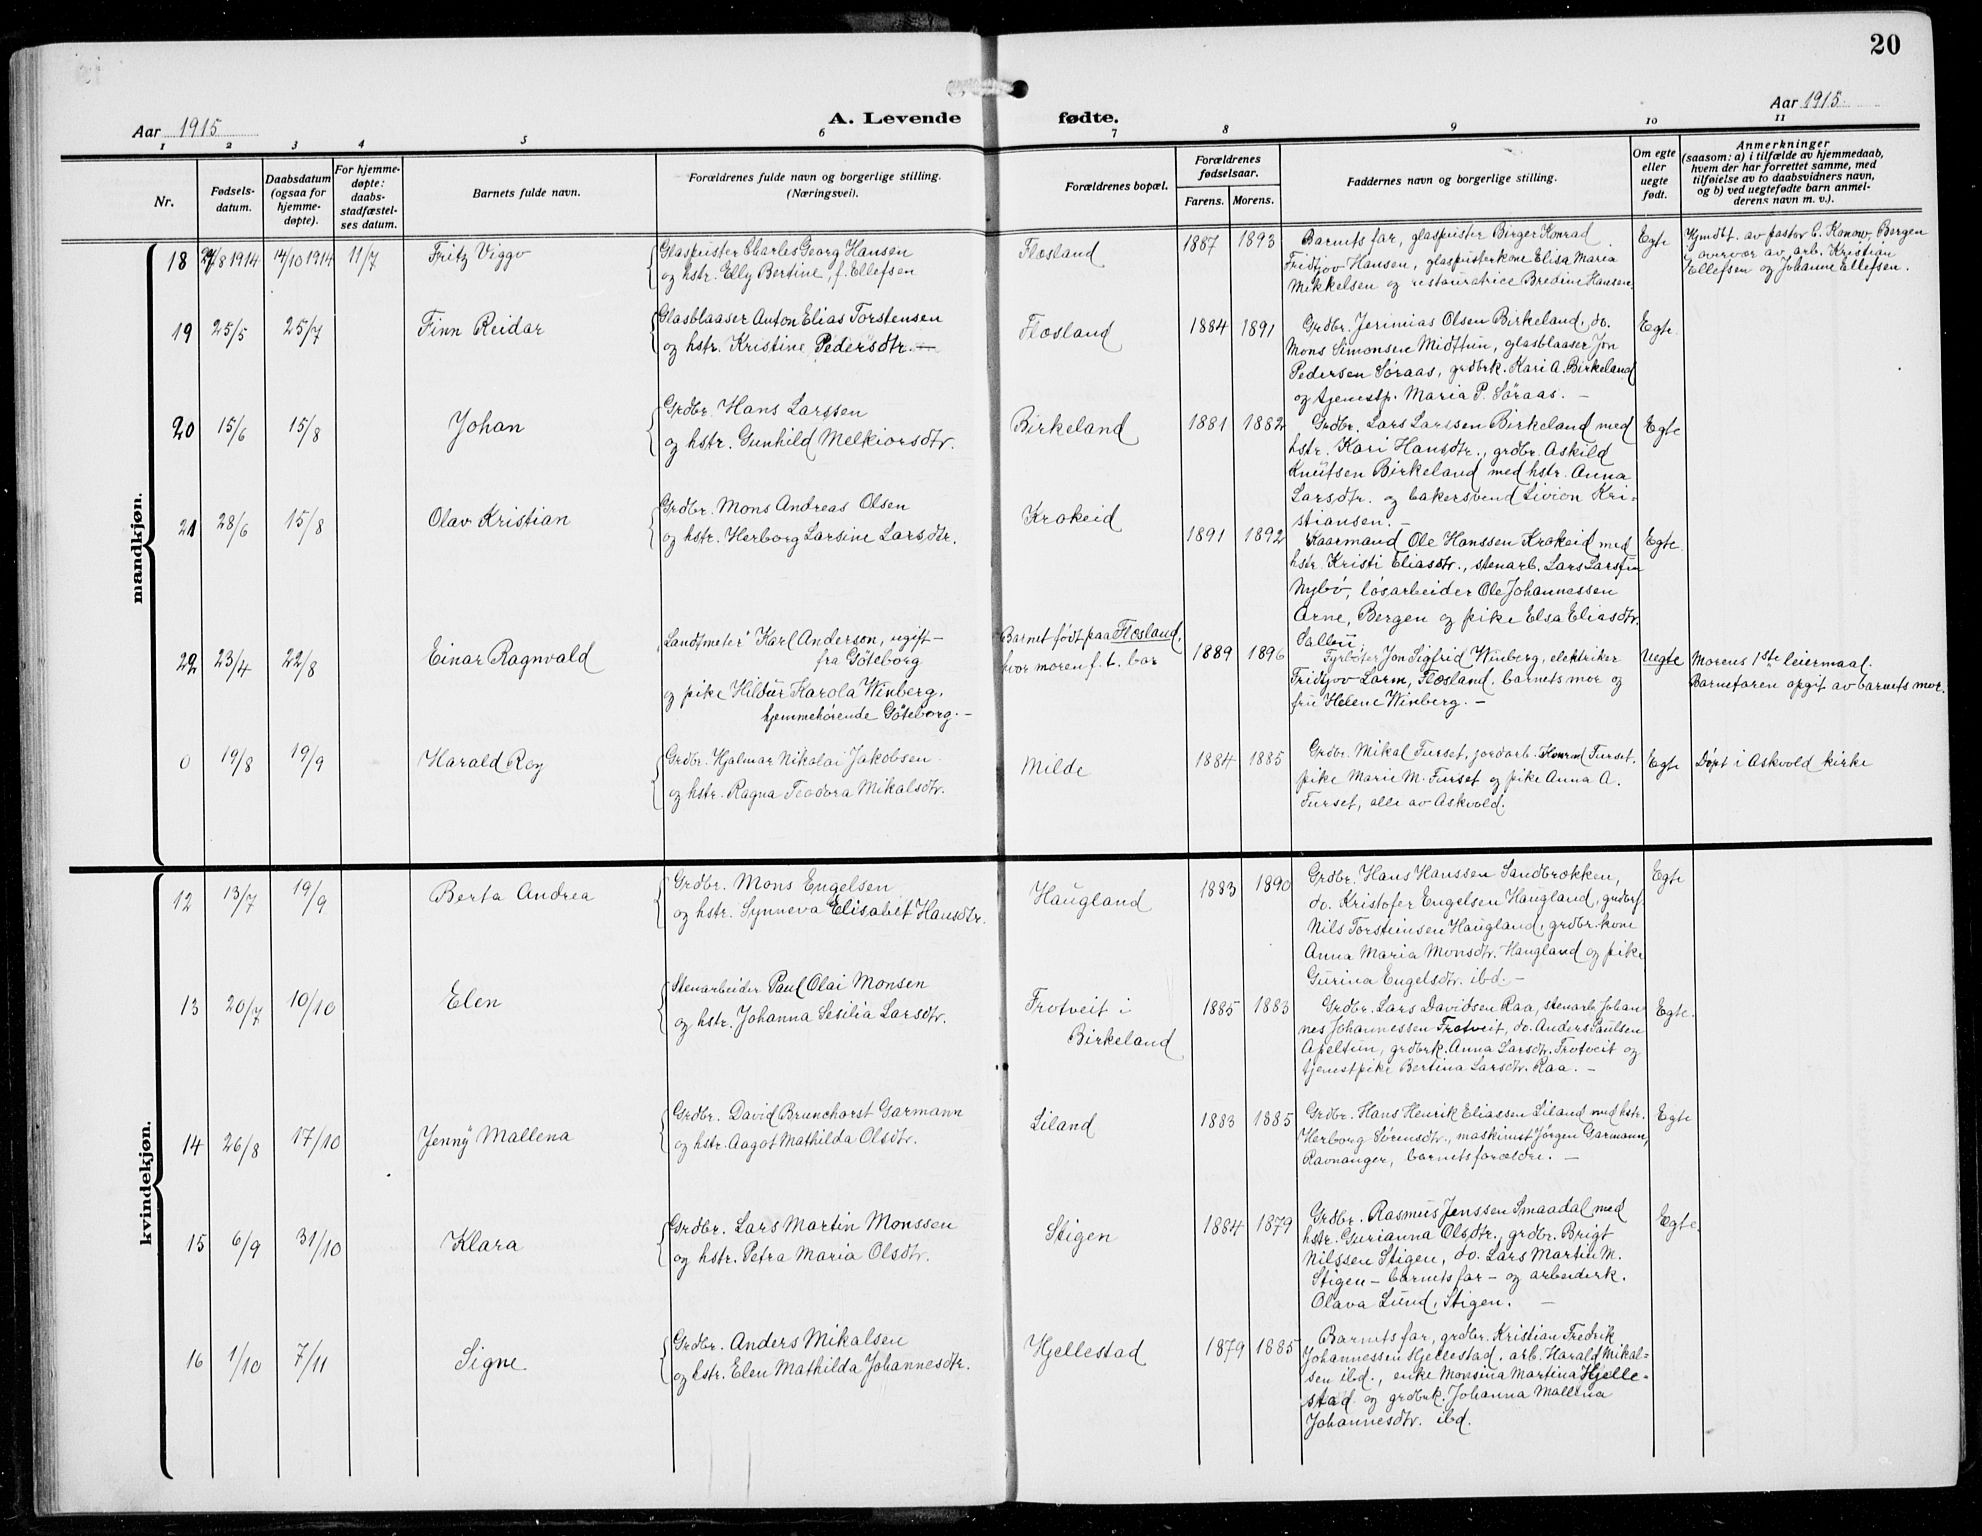 20
Aar 1915
A. Levende fødte.
Aar 1915.
1 2 3 4 5 6 7 8 9 10 11
Nr.
Fødsels-
datum.
Daabsdatum
(ogsaa for
hjemme-
døpte).
For hjemme-
døpte:
daabs-
stadfæstel-
ses datum.
Barnets fulde navn.
Forældrenes fulde navn og borgerlige stilling.
(Næringsvei).
Forældrenes bopæl.
Forældrenes
fødselsaar.
Farens. Morens.
Faddernes navn og borgerlige stilling.
Om egte
eller
uegte
født.
Anmerkninger
(saasom: a) i tilfælde av hjemmedaab,
hvem der har forrettet samme, med
tilføielse av to daabsvidners navn,
og b) ved uegtefødte barn anmel-
derens navn m. v.).
mandkjøn.
18 /8 1914 14/10 1914 11/7
Fritz Viggo
Glaspuster Charles Georg Hansen
og hstr. Elly Bertine f. Ellefsen
Flæsland
1887 1893
Barnets far, glaspuster Birger Konrad
Fridtjov Hansen, glaspusterkone Elisa Maria
Mikkelsen og restauratrice Bredine Hansen.
Egte
Hjmdbt. av pastor C. Konow, Bergen
i overvær av arb. Kristian
Ellefsen og Johanne Ellefsen.
19 25/5 25/7
Finn Reidar
Glasblaaser Anton Elias Torstensen
og hstr. Kristine Pedersdtr. —
Flæsland
1884 1891
Grdbr. Jerimias Olsen Birkeland, do.
Mons Simonsen Midttun, glasblaaser Jon
Pedersen Søraas, grdbrk. Kari A. Birkeland
og tjenestp. Maria P. Søraas. —
Egte.
20 15/6 15/8
Johan
Grdbr. Hans Larssen
og hstr. Gunhild Melkiorsdtr.
Birkeland
1881 1882
Grdbr. Lars Larssen Birkeland med
hstr. Kari Hansdtr., grdbr. Askild
Knutsen Birkeland med hstr. Anna
Larsdtr. og bakersvend Livion Kri-
stiansen. —
Egte
21 28/6 15/8
Olav Kristian
Grdbr. Mons Andreas Olsen
og hstr. Herborg Larsine Larsdtr.
Krokeid
1891 1892
Kaarmand Ole Hanssen Krokeid med
hstr. Kristi Eliasdtr., stenarb. Lars Larssen
Nybø, løsarbeider Ole Johannessen
Arne, Bergen og pike Elsa Eliasdtr.
Sælbu.
Egte.
22 23/4 22/8
Einar Ragnvald
"Landtmeter" Karl Anderson, ugift —
fra Göteborg
og pike Hildur Karola Winberg,
hjemmehørende Göteborg. —
Barnet født paa Flæsland,
hvor moren f. t. bor
1889 1896
Fyrbøter Jon Sigfrid Winberg, elektriker
Fridtjov Larm, Flæsland, barnets mor og
fru Helene Winberg. —
Uegte
Morens 1ste leiermaal.
Barnefaren opgit av barnets mor.
0 19/8 19/9
Harald Roy
Grdbr. Hjalmar Nikolai Jakobsen
og hstr. Ragna Teodora Mikalsdtr.
Milde
1884 1885
Grdbr. Mikal Furset, jordarb. Konrad Furset,
pike Marie M. Furset og pike Anna A.
Furset, alle av Askvold.
Egte
Døpt i Askvold kirke
kvindekjøn.
12 13/7 19/9
Berta Andrea
Grdbr. Mons Engelsen
og hstr. Synneva Elisabet Hansdtr.
Haugland
1883 1890
Grdbr. Hans Hanssen Sandbrækken,
do. Kristofer Engelsen Haugland, grdbrf.
Nils Torsteinsen Haugland, grdbr.kone
Anna Maria Monsdtr. Haugland og pike
Gurina Engelsdtr. ibd. —
Egte
13 20/7 10/10
Elen
Stenarbeider Paul Olai Monsen
og hstr. Johanna Sesilia Larsdtr.
Frotveit i
Birkeland
1885 1883
Grdbr. Lars Davidsen Raa, stenarb. Johan-
nes Johannessen Frotveit, do. Anders Paulsen
Apeltun, grdbrk. Anna Larsdtr. Frotveit og
tjenestpike Bertina Larsdtr. Raa. —
Egte.
14 26/8 17/10
Jenny Mallena
Grdbr. David Brunchorst Garmann
og hstr. Aagot Mathilda Olsdtr.
Liland
1883 1885
Grdbr. Hans Henrik Eliassen Liland med hstr.
Herborg Sørensdtr., maskinist Jørgen Garmann,
Ravnanger, barnets forældre. —
Egte
15 6/9 31/10
Klara
Grdbr. Lars Martin Monssen
og hstr. Petra Maria Olsdtr.
Stigen
1884 1879
Grdbr. Rasmus Jenssen Smaadal med
hstr. Gurianna Olsdtr., grdbr. Brigt
Nilssen Stigen, do. Lars Martin M.
Stigen — barnets far — og arbeiderk.
Olava Lund, Stigen. —
Egte.
16 1/10 7/11
Signe
Grdbr. Anders Mikalsen
og hstr. Elen Mathilda Johannesdtr.
Hjellestad
1879 1885
Barnets far, grdbr. Kristian Fredrik
Johannessen Hjellestad, arb. Harald Mikal-
sen ibd., enke Monsina Martina Hjelle-
stad og grdbrk. Johanna Mallena
Johannesdtr. ibd.